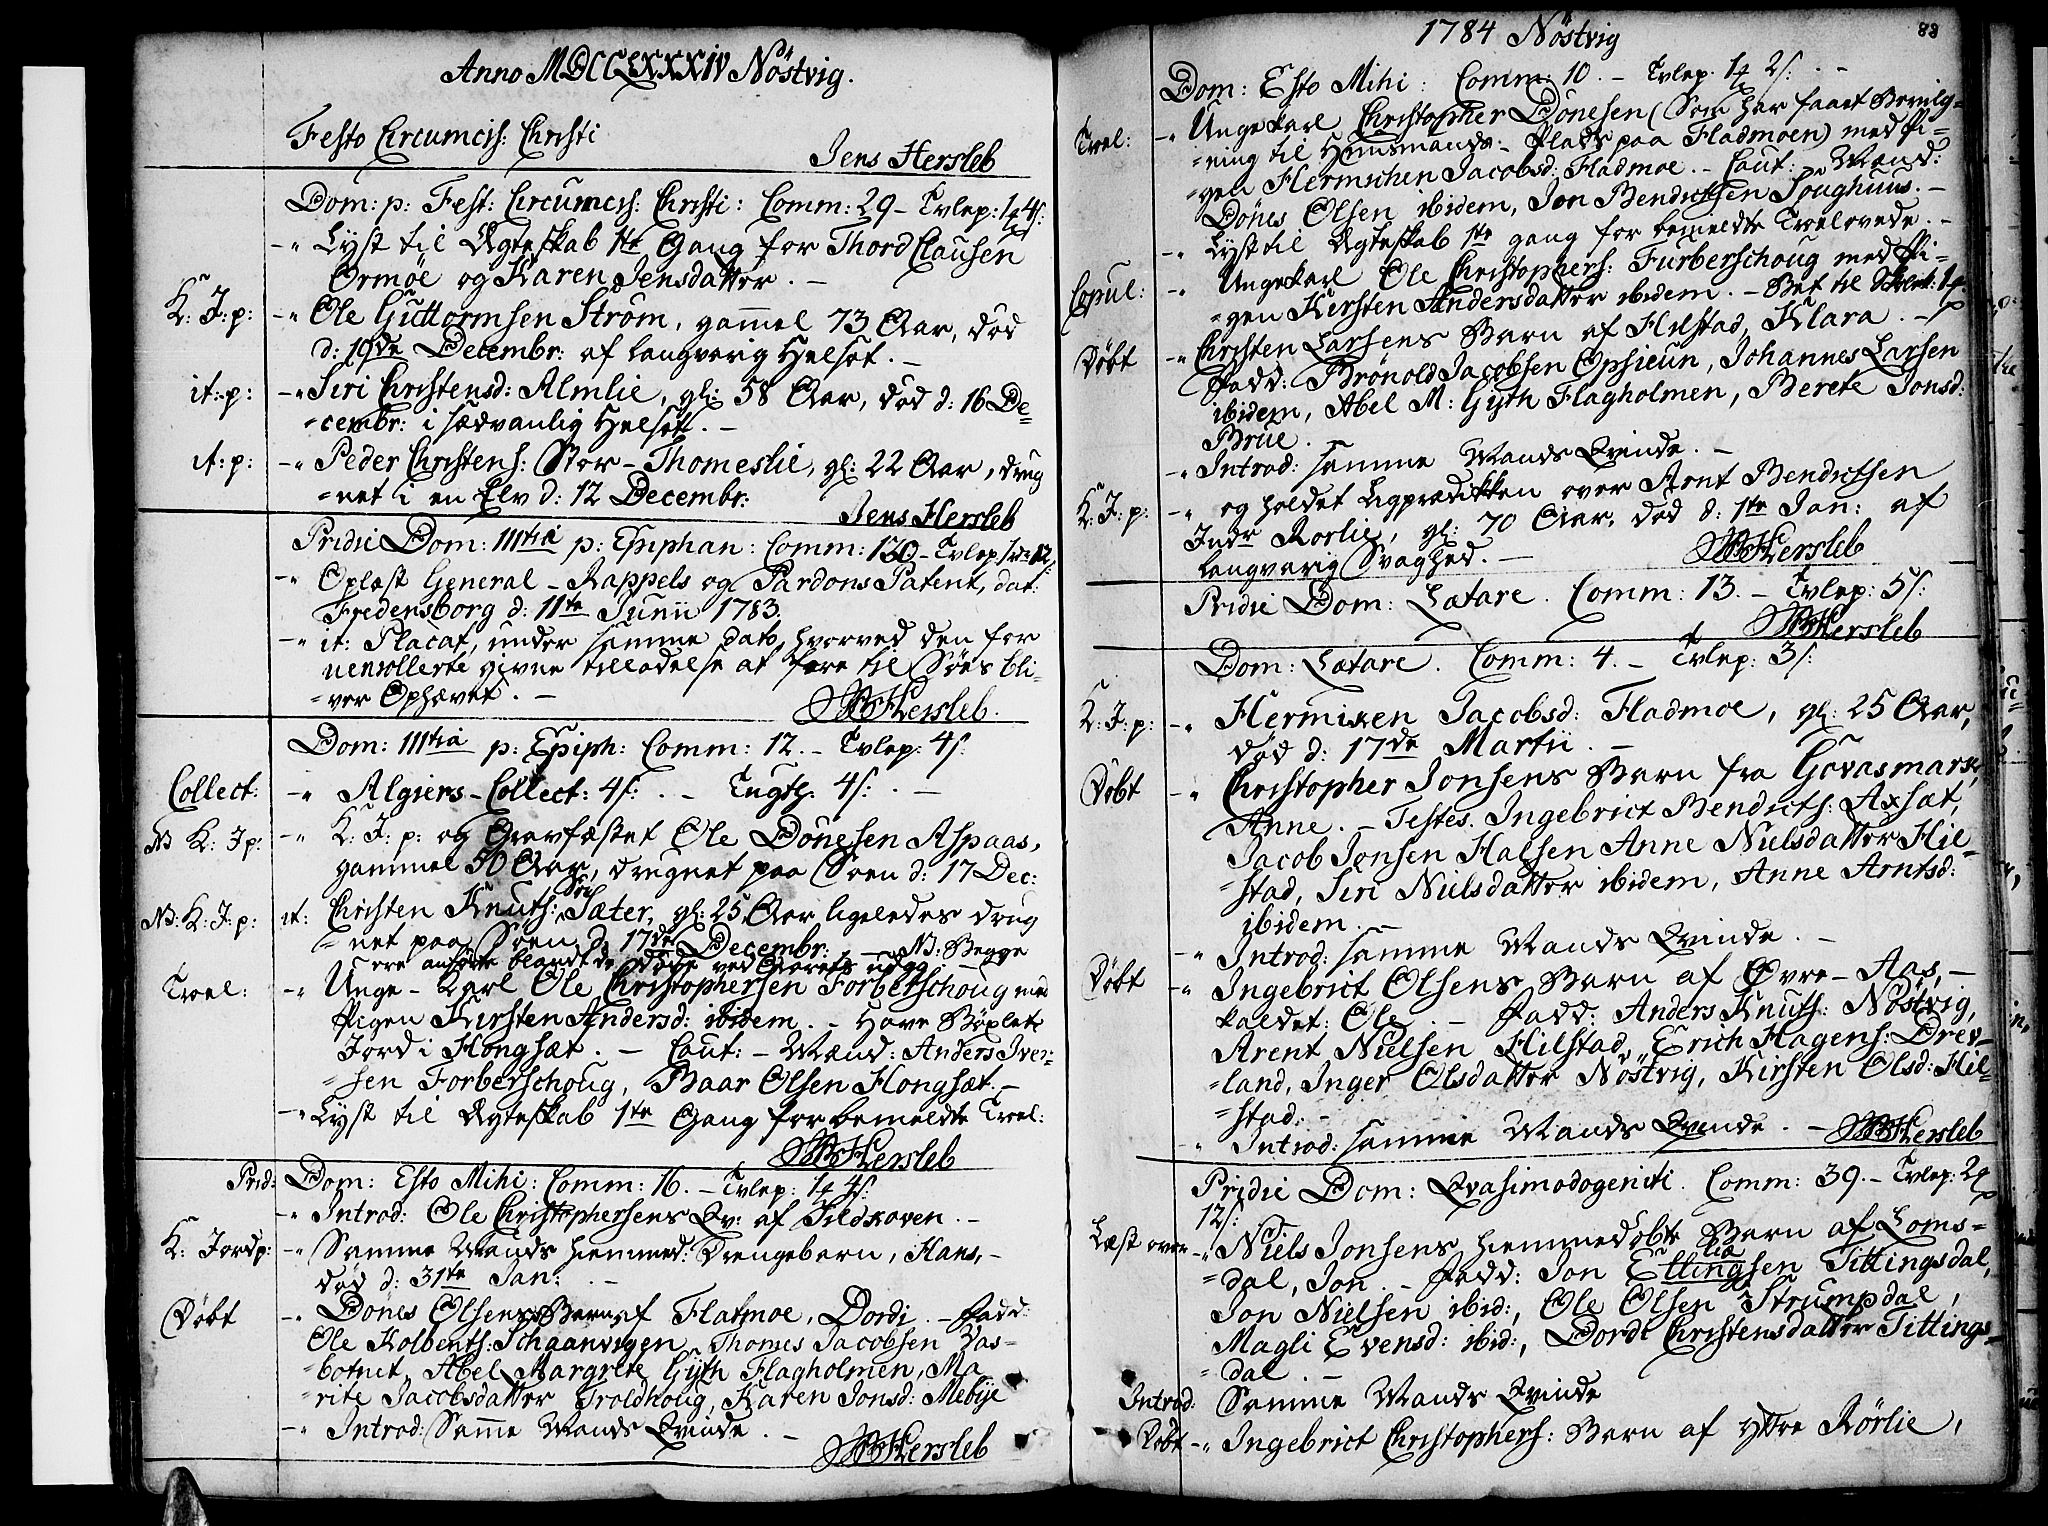 Anno MDCCLXXXIV Nöstvig.
Festo Circumcis: Christi
Jens Hersleb
Dom: p: Fest: Circumcis: Christi: Comm: 29 - Tvlep: 1 4s:
-" Lyst til Ægteskab 1te Gang for Thord Clausen
Ormöe og Karen Jensdatter. -
K: J: p: -" Ole Guttormsen Ström, gammel 73 Aar, död
d: 19de Decembr: af langvarig Helsot. -
it: p: -" Siri Christensd: Almlie, gl: 58 Aar, död d: 16 De=
=cembr: i sædvanlig Helsot. -
it: p: -" Peder Christens: Stor-Thomeslie, gl: 22 Aar, drug
=net i en Elv d: 12 Decembr:
Jens Hersleb
Pridie Dom: IIItia p: Epiphan: Comm: 130 - Tvlep:
-" Oplæst General-Rappels og Pardons Patent, dat:
Fredensborg d: 11te Junii 1783.
-" it: Placat, under samme dato, hvorved den for
uenrollerte givne tilladelse at fare til Söes bli=
=ver Ophævet. -
Hersleb.
Dom: IIItia p: Epiph: Comm: 12. - Tvlep: 4s:
Collect: -" Algiers-Collect: 4s: . - Tugth: 4s: . -
NB K: Jp: -" K: J: p: og Gravfæstet Ole Dönesen Aspaas,
gammel 50 Aar, drugnet paa Söen d: 17 Dec:
NB: K: J: p: it: Christen Knuts: Sæter, gl: 25 Aar ligeledes drug
=net paa Söen d: 17de Decembr: - NB: Begge
ere anförte blandt de döde ved Aarets udgg. -
Troel: -" Unge-Karl Ole Christophersen Forberschoug med
Pigen Kirsten Andersd: ibidem. - Have Böxlet
Jord i Hongsæt. - Caut: - Mænd: Anders Iver=
=sen Forberschoug, Baar Olsen Hongsæt. -
-" Lyst til Ægteskab 1te Gang for bemeldte Troel:
Hersleb
Prid: Dom: Esto Mihi: Comm: 16. - Tvlep: 1 4s:
-" Introd: Ole Christophersens Qv: af Tildskoven. -
K: Jordp: -" Samme Mands hiemmed: Drengebarn, Hans, -
död d: 31te Jan: . -
Döbt -" Dönes Olsens Barn af Flatmoe, Dordi. - Fadd:
Ole Kolbents: Schaanvigen, Thomes Jacobsen Bas=
=botnet, Abel Margrete Gyth Flagholmen, Ma=
rite Jacobsdatter Troldhoug, Karen Jonsd: Mebye
-" Introd: Samme Mands Qvinde. -
Hersleb
1784 Nöstvig
88
Dom: Esto Mihi: Comm: 10. - Tvlep. 1 2s: . -
Troel: -" Ungekarl Christopher Dönesen (Som har faaet Bevilg=
=ning til Huusmands-Plads paa Fladmoen) med Pi=
=gen Hermichen Jacobsd: Fladmoe. - Caut: - Mænd:
Dönes Olsen ibidem, Jon Bendictsen Söughuus. -
-" Lyst til Ægteskab 1te gang for bemeldte Troelovede. -
Copul: -" Ungekarl Ole Christophers: Furberschoug med Pi=
=gen Kirsten Andersdatter ibidem. - Bet til
Döbt -" Christen Larsens Barn af Hilstad, Klara. -
Fadd: Brönold Jacobsen Opsieun, Johannes Larsen
ibidem, Abel M: Gyth Flagholmen, Berete Jonsd:
Brue.
-" Introd: samme Mands Qvinde. -
K: J: p: -" og holdet Ligprædikken over Arnt Bendictsen
Indr Rorlie, gl: 70 Aar, död d: 1te Jan: af
langvarig Svaghed. -
Hersleb
Pridie Dom: Lætare. Comm: 13. - Tvlep: 5s:
Hersleb
Dom: Lætare. Comm: 4. - Tvlep: 3s:
K: J: p: -" Hermiken Jacobsd: Fladmoe, gl: 25 Aar,
död d: 17de Martii. -
Döbt -" Christopher Jonsens Barn fra Govasmark,
Anne. - Testes. Ingebrict Bendicts: Axsæt,
Jacob Jonsen Halsen Anne Nielsdatter Hil=
=stad, Siri Nielsdatter ibidem, Anne Arntsd:
ibidem. -
-" Introd: samme Mands Qvinde. -
Döbt -" Ingebrict Olsens Barn af Övre-Aas, -
kaldet: Ole. - Fadd: Anders Knuts: Nöstvig,
Arent Nielsen Hilstad, Erich Hagens: Drev=
=land, Inger Olsdatter Nöstvig, Kirsten Olsd: Hil=
=stad. -
" Introd: samme Mands Qvinde. - Hersleb
Pridie Dom: Qvasimodogeniti. Comm: 39. - Tvlep: 2
12s:
Læst over -" Niels Jonsens hiemmedöbte Barn af Loms=
=dal, Jon. - Fadd: Jon Ellingsen Tittingsdal,
Jon Nielsen ibid:, Ole Olsen Strumpdal,
Magli Evensd: ibid:, Dordi Christensdatter Tittings=
=dal. -
Introd: Samme Mands Qvinde
Döbt -" Ingebrict Christophers: Barn af yttre Rörlie,